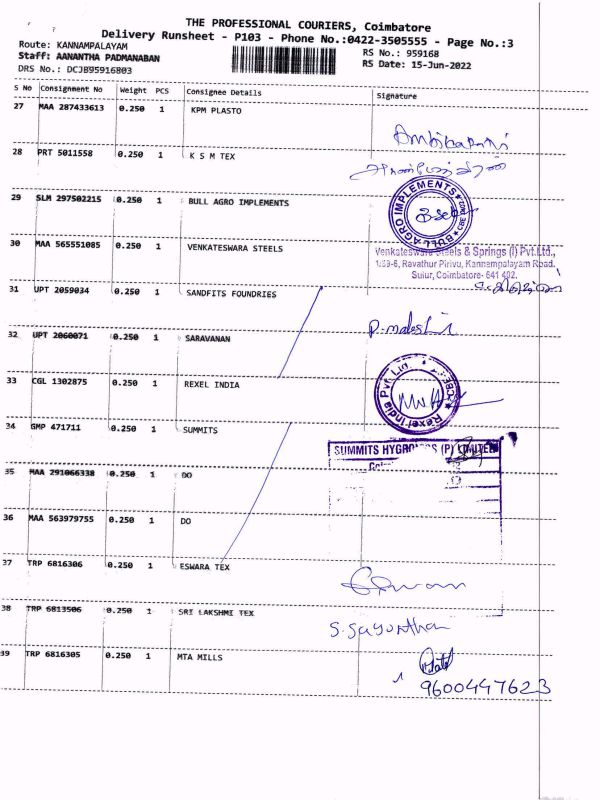 THE PROFESSIONAL COURIERS, Coimbatore
Delivery Runsheet - P103 - Phone No.:0422-3505555 - Page No.:3
Route: KANNAMPALAYAM
RS No.: 959168
Staff: AANANTHA PADMANABAN
RS Date: 15-Jun-2022
DRS No.: DCJB95916803
S No Consignment No Weight PCS Consignee Details Signature
27 MAA 287433613 0.250 1 KPM PLASTO
Ambikapathi
28 PRT 5011558 0.250 1 K S M TEX
29 SLM 297502215 0.250 1 BULL AGRO IMPLEMENTS
BULL AGRO IMPLEMENTS
30 MAA 565551085 0.250 1 VENKATESWARA STEELS
Venkateswara Steels & Springs (I) Pvt.Ltd.,
Ravathur Pirivu, Kannampalayam Road,
Sulur, Coimbatore- 641 402.
31 UPT 2059034 0.250 1 SANDFITS FOUNDRIES
32 UPT 2060071 0.250 1 SARAVANAN
33 CGL 1302875 0.250 1 REXEL INDIA
Rexel India Pvt. Ltd.
34 GMP 471711 0.250 1 SUMMITS
SUMMITS (P) LIMITED
35 MAA 291066338 0.250 1 DO
36 MAA 563979755 0.250 1 DO
37 TRP 6816306 0.250 1 ESWARA TEX
38 TRP 6813506 0.250 1 SRI LAKSHMI TEX
39 TRP 6816305 0.250 1 MTA MILLS
9600447623